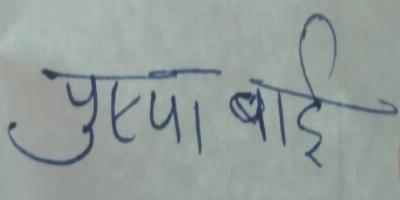 पुष्पा बाई